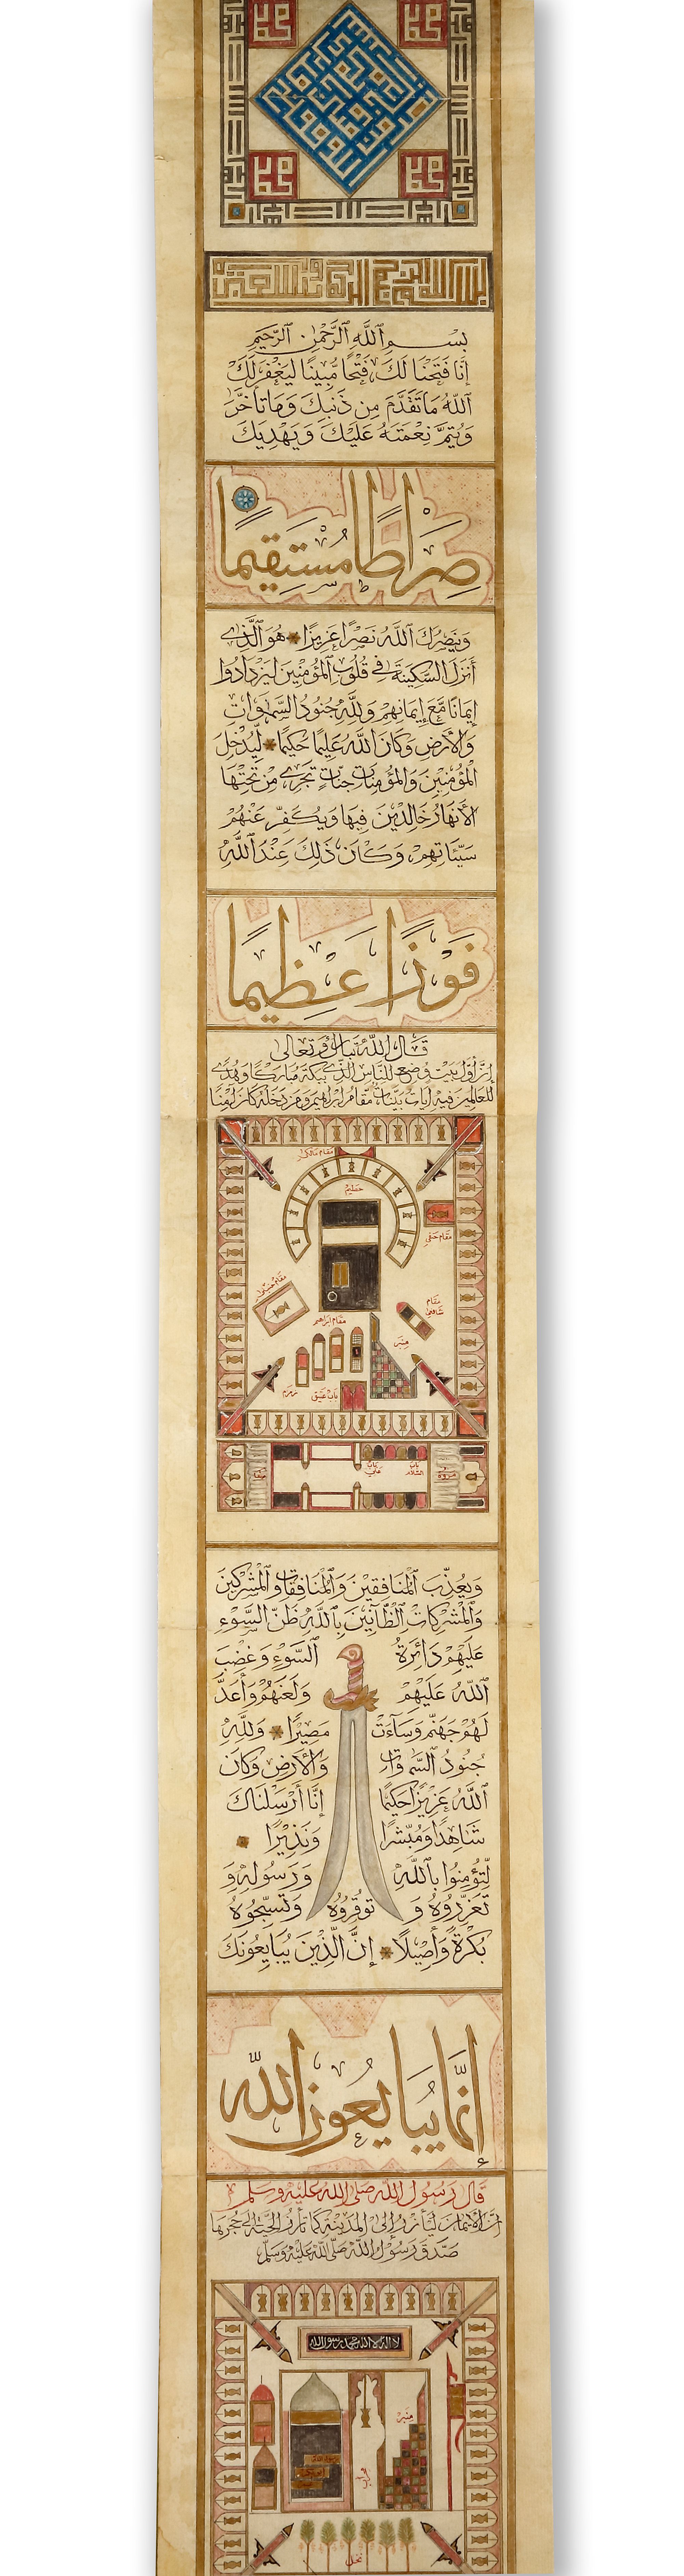 بِسْمِ ٱللَّهِ ٱلرَّحْمٰنِ ٱلرَّحِيمِ
إِنَّا فَتَحْنَا لَكَ فَتْحًا مُّبِينًا لِيَغْفِرَ لَكَ
ٱللَّهُ مَا تَقَدَّمَ مِن ذَنْبِكَ وَمَا تَأَخَّرَ
وَيُتِمَّ نِعْمَتَهُ عَلَيْكَ وَيَهْدِيَكَ
صِرَاطًا مُسْتَقِيمًا
وَيَنْصُرَكَ ٱللَّهُ نَصْرًا عَزِيزًا هُوَ ٱلَّذِي
أَنْزَلَ السَّكِينَةَ فِي قُلُوبِ ٱلْمُؤْمِنِينَ لِيَزْدَادُوا
إِيمَانًا مَّعَ إِيمَانِهِمْ وَلِلَّهِ جُنُودُ السَّمٰوَاتِ
وَالْأَرْضِ وَكَانَ اللَّهُ عَلِيمًا حَكِيمًا لِيُدْخِلَ
الْمُؤْمِنِينَ وَالْمُؤْمِنَاتِ جَنَّاتٍ تَجْرِي مِنْ تَحْتِهَا
الْأَنْهَارُ خَالِدِينَ فِيهَا وَيُكَفِّرَ عَنْهُمْ
سَيِّئَاتِهِمْ وَكَانَ ذَلِكَ عِنْدَ اللَّهِ
فَوْزًا عَظِيمًا
قَالَ اللَّهُ تَبَارَكَ وَتَعَالَى
إِنَّ أَوَّلَ بَيْتٍ وُضِعَ لِلنَّاسِ لَلَّذِي بِبَكَّةَ مُبَارَكًا وَهُدًى
لِلْعَالَمِينَ فِيهِ آيَاتٌ بَيِّنَاتٌ مَقَامُ إِبْرَاهِيمَ وَمَنْ دَخَلَهُ كَانَ آمِنًا
مقام مالكي
حطيم
مقام حنفي
مقام حنبلي
مقام شافعي
مقام ابراهيم
منبر
زمزم
باب عتيق
صفا
باب علي
باب السلام
مروه
وَيُعَذِّبَ ٱلْمُنَافِقِينَ وَٱلْمُنَافِقَاتِ وَٱلْمُشْرِكِينَ
وَٱلْمُشْرِكَاتِ ٱلظَّانِّينَ بِٱللَّهِ ظَنَّ السَّوْءِ
عَلَيْهِمْ دَائِرَةُ ٱلسَّوْءِ وَغَضِبَ
ٱللَّهُ عَلَيْهِمْ وَلَعَنَهُمْ وَأَعَدَّ
لَهُمْ جَهَنَّمَ وَسَآءَتْ مَصِيرًا وَلِلَّهِ
جُنُودُ السَّمٰوَاتِ وَالْأَرْضِ وَكَانَ
ٱللَّهُ عَزِيزًا حَكِيمًا إِنَّا أَرْسَلْنَاكَ
شَاهِدًا وَمُبَشِّرًا وَنَذِيرًا
لِّتُؤْمِنُوا بِٱللَّهِ وَرَسُولِهِ وَ
تُعَزِّرُوهُ وَتُوَقِّرُوهُ وَتُسَبِّحُوهُ
بُكْرَةً وَأَصِيلًا إِنَّ الَّذِينَ يُبَايِعُونَكَ
إِنَّمَا يُبَايِعُونَ اللَّهَ
قَالَ رَسُولُ اللَّهِ صَلَّى اللَّهُ عَلَيْهِ وَسَلَّمَ
إِنَّ الْإِيمَانَ لَيَأْرِزُ إِلَى الْمَدِينَةِ كَمَا تَأْرِزُ الْحَيَّةُ إِلَى جُحْرِهَا
صَدَقَ رَسُولُ اللَّهِ صَلَّى اللَّهُ عَلَيْهِ وَسَلَّمَ
لا اله الا الله محمد رسول الله
منبر
محراب
نخل